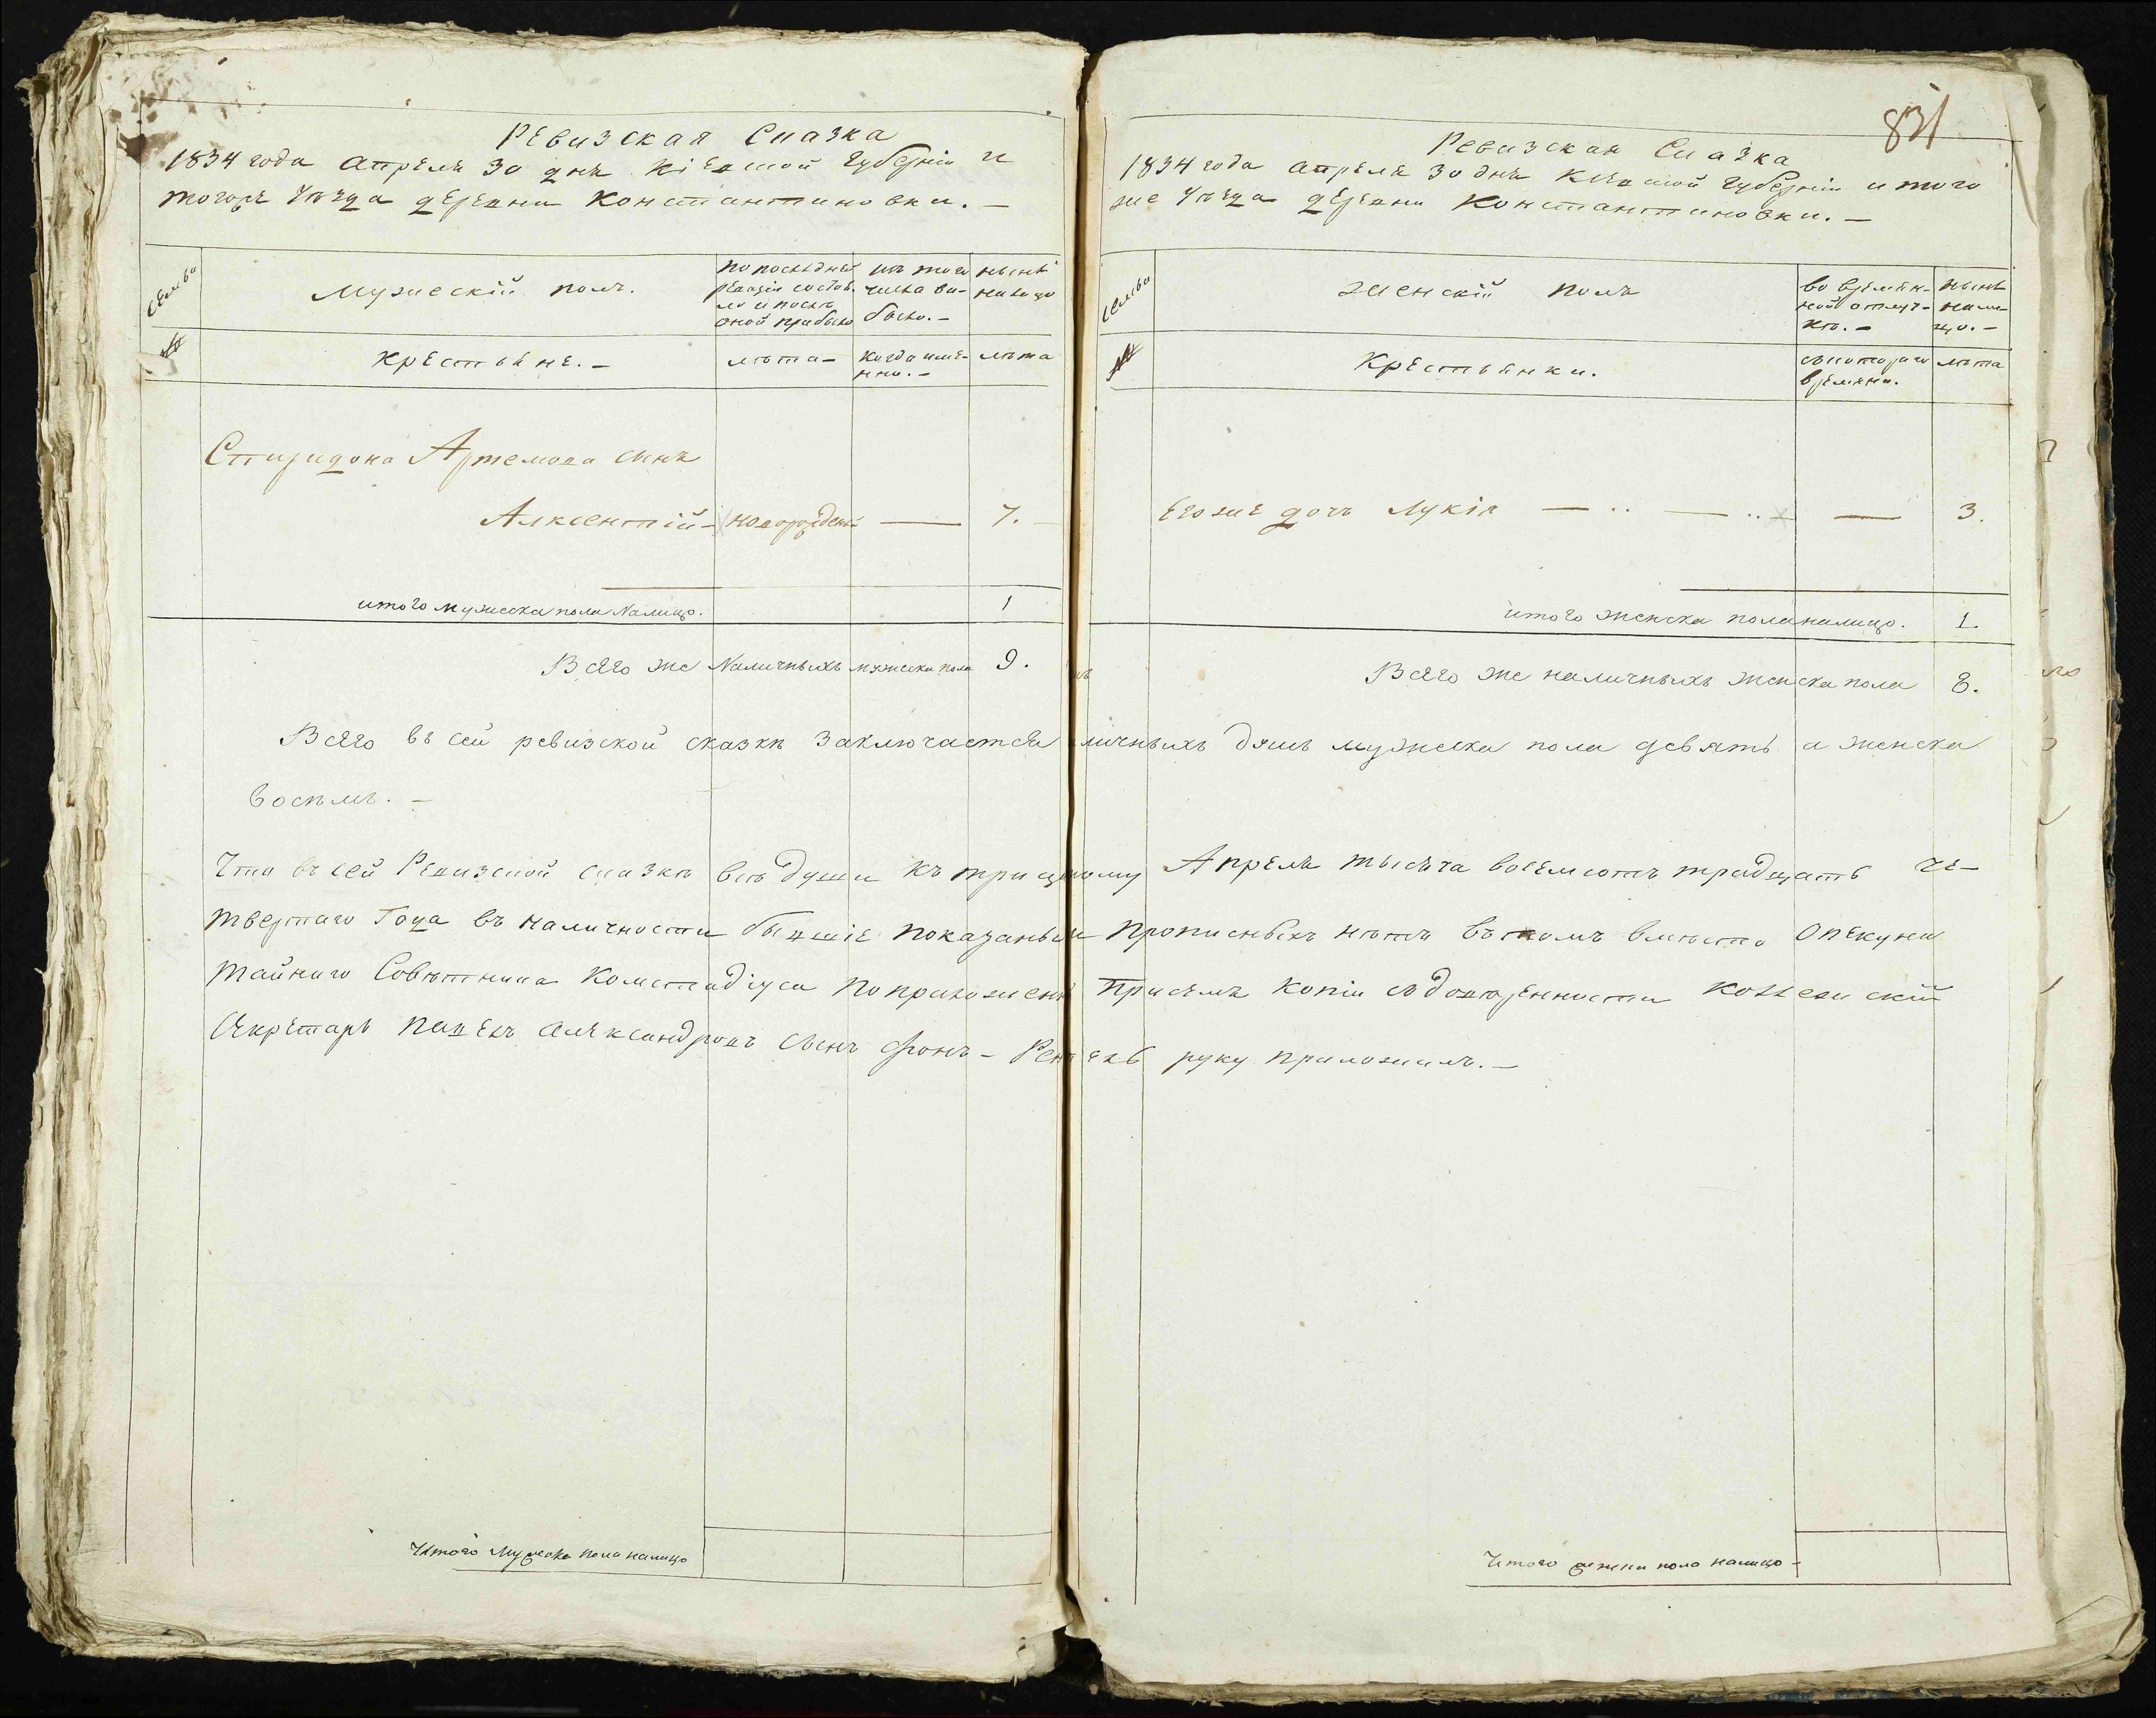 Ревизская Сказка
1834 года Апреля 30 дня Кіевской Губерніи и
тогоже Уѣзда деревни Константиновки. —
Семьи
Мужескій полъ.
по послѣдней
ревизіи состоя-
ло и послѣ
оной прибыло
изъ того
числа вы-
было. —
нынѣ
налицо
№
Крестьяне. —
лѣта —
когда име-
нно. —
лѣта
Спиридона Артемова сынъ
Алксентій — новорожденъ — 7.
итого мужеска пола Налицо. 1
Всего же Наличныхъ мужеска пола 9.
831
Ревизская Сказка
1834 года Апреля 30 дня Кіевской Губерніи и того
же Уѣзда деревни Константиновки. —
семьи
женскій полъ
во времян-
ной отлуч-
кѣ. —
нынѣ
нали-
цо. —
№
Крестьянки.
съ котораго
времяни.
лѣта
Его же дочь Лукія — .. — .. — 3.
итого женска пола налицо. 1.
Всего же наличныхъ женска пола 8.
Всего въ сей ревизской сказкѣ заключается личныхъ душъ мужеска пола девять а женска
восѣмь. —
Что въ сей Ревизской сказкѣ всѣ души къ тридцатому Апреля тысяча восемьсотъ тридцать че-
твертаго Года въ наличности бывшіе показаны и прописныхъ нѣтъ въ томъ вмѣсто Опекуна
тайнаго Совѣтника по приложенной при семъ копіи съ довѣренности Коллежскій
Секретарь Павелъ Александровъ сынъ фонъ- руку приложилъ. —
Итого Мужеска пола налицо
Итого женска пола налицо —